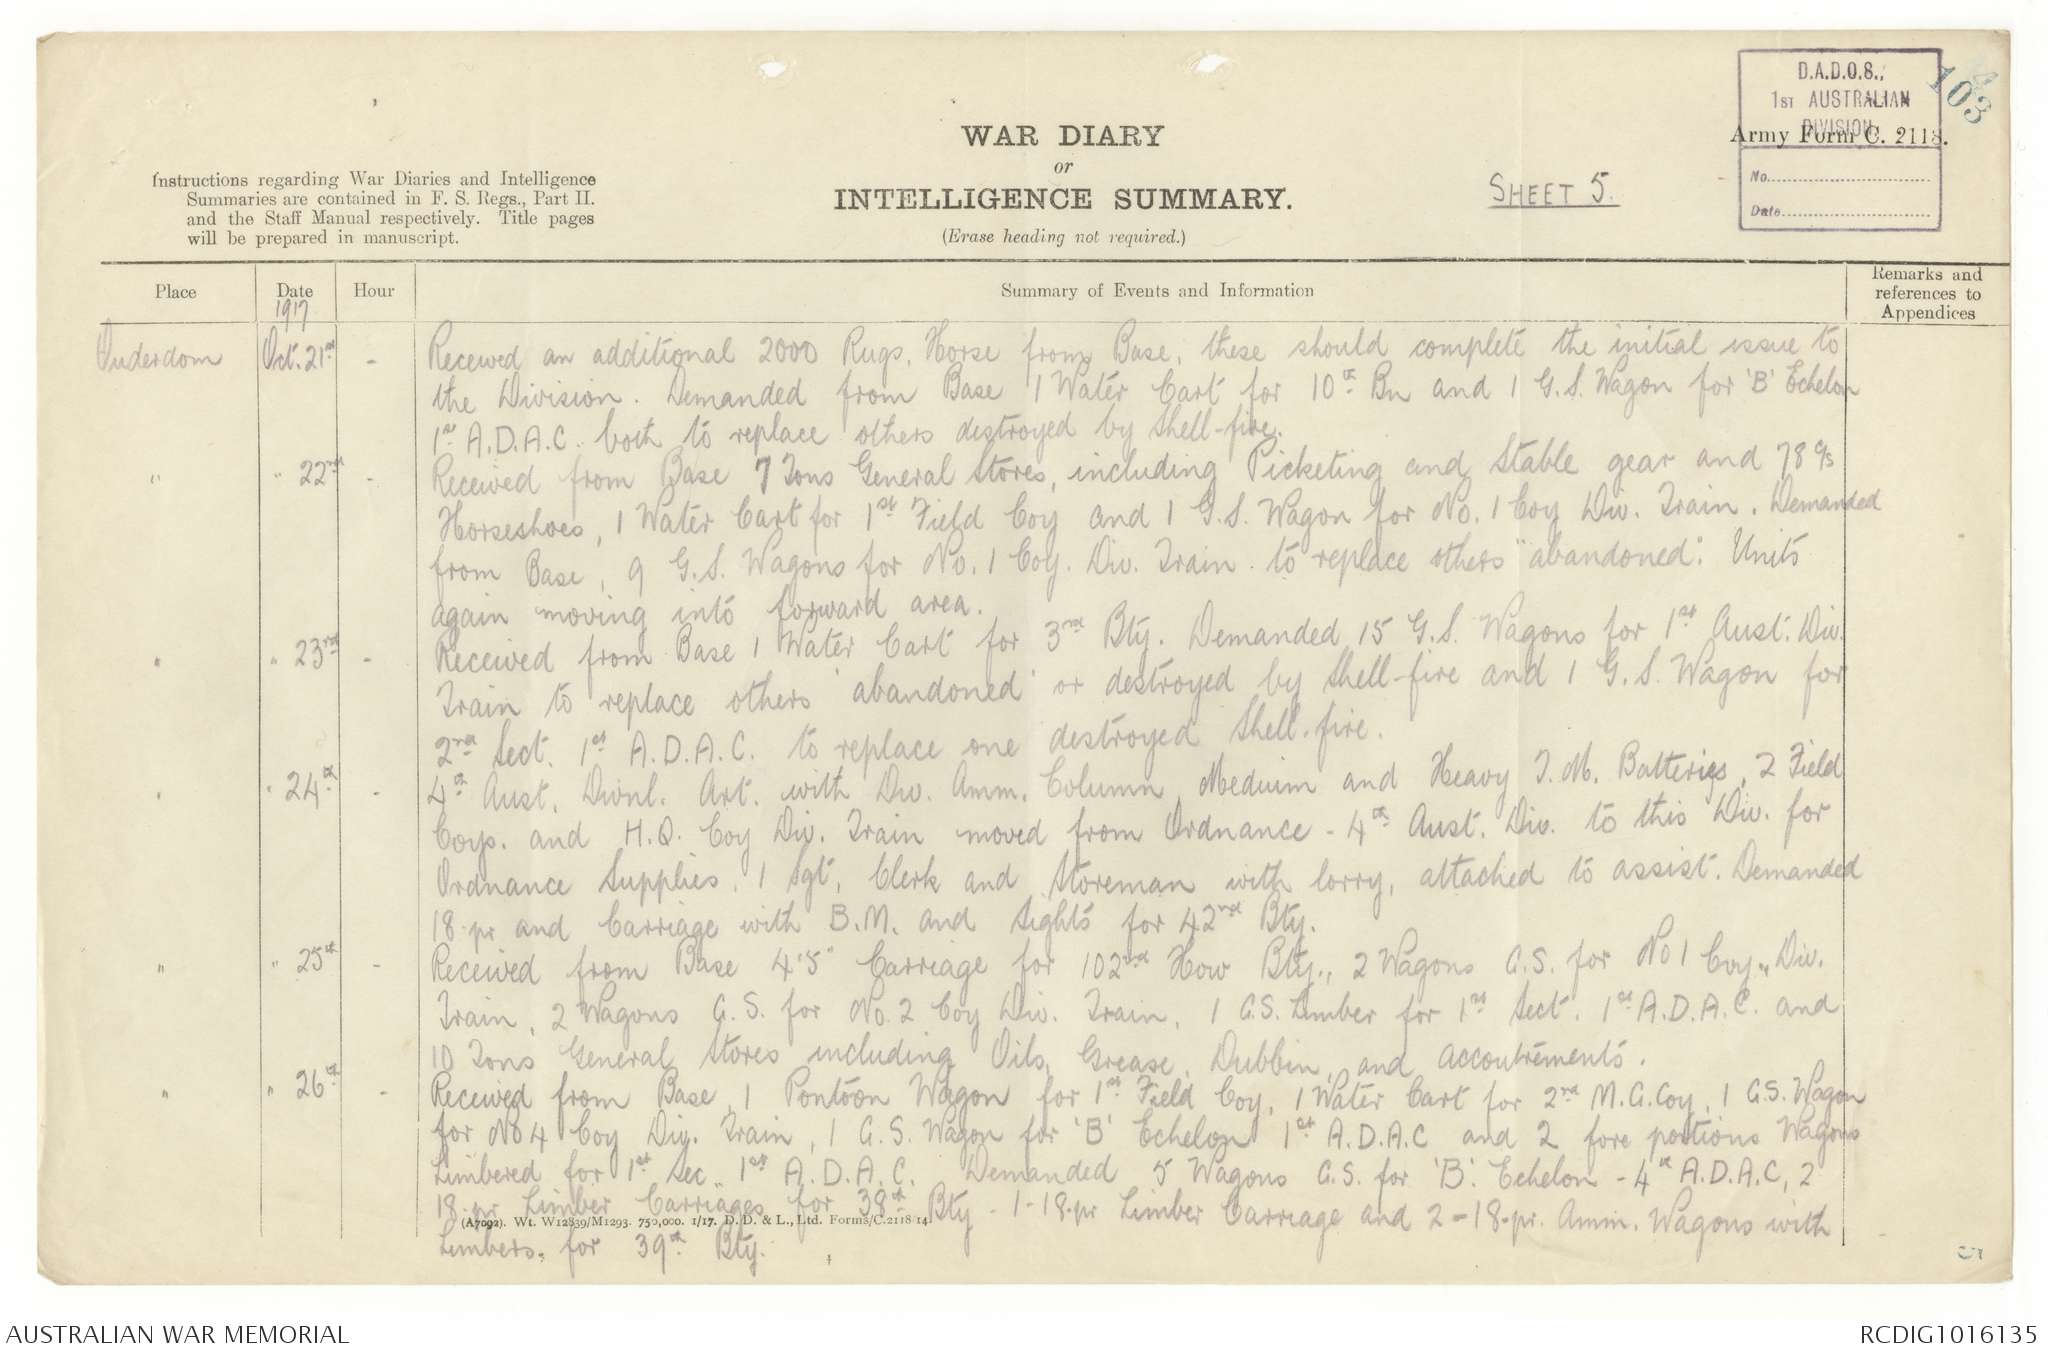 D.A.D.O.S.,
1ST AUSTRALIAN
DIVISION
No.
Date
103
Army Form C. 2118.
WAR DIARY
or
INTELLIGENCE SUMMARY.
(Erase heading not required.)
SHEET 5.
Instructions regarding War Diaries and Intelligence
Summaries are contained in F. S. Regs., Part II.
and the Staff Manual respectively. Title pages
will be prepared in manuscript.
Place Date Hour Summary of Events and Information Remarks and references to Appendices
1917
Ouderdom Oct. 21st - Received an additional 2000 Rugs, Horse from Base, these should complete the initial issue to
the Division. Demanded from Base 1 Water Cart for 10th Bn and 1 G.S. Wagon for 'B' Echelon
1st A.D.A.C. both to replace others destroyed by shell-fire.
" " 22nd - Received from Base 7 Tons General Stores, including Picketing and Stable gear and 78 c/s
Horseshoes, 1 Water Cart for 1st Field Coy and 1 G.S. Wagon for No. 1 Coy Div. Train. Demanded
from Base, 9 G.S. Wagons for No. 1 Coy. Div. Train. to replace others "abandoned". Units
again moving into forward area.
" " 23rd - Received from Base 1 Water Cart for 3rd Bty. Demanded 15 G.S. Wagons for 1st Aust. Div.
Train to replace others 'abandoned' or destroyed by shell-fire and 1 G.S. Wagon for
2nd Sect. 1st A.D.A.C. to replace one destroyed shell-fire.
" " 24th - 4th Aust. Divnl. Art. with Div. Amm. Column, Medium and Heavy T.M. Batteries, 2 Field
Coys. and H.Q. Coy Div. Train moved from Ordnance - 4th Aust. Div. to this Div. for
Ordnance Supplies, 1 Sgt, Clerk and Storeman with lorry, attached to assist. Demanded
18-pr and Carriage with B.M. and Sights for 42nd Bty.
" " 25th - Received from Base 4.5" Carriage for 102nd How Bty., 2 Wagons G.S. for No 1 Coy., Div.
Train, 2 Wagons G.S. for No. 2 Coy Div. Train, 1 G.S. Limber for 1st Sect. 1st A.D.A.C. and
10 Tons General Stores including Oils, Grease, Dubbin, and accoutrements.
" " 26th - Received from Base, 1 Pontoon Wagon for 1st Field Coy, 1 Water Cart for 2nd M.G. Coy, 1 G.S. Wagon
for No 4 Coy Div. Train, 1 G.S. Wagon for 'B' Echelon 1st A.D.A.C and 2 fore portions Wagons
Limbered for 1st Sec. 1st A.D.A.C. Demanded 5 Wagons G.S. for 'B' Echelon - 4th A.D.A.C, 2
18-pr Limber Carriages for 38th Bty - 1-18-pr Limber Carriage and 2-18-pr. Amm. Wagons with
Limbers, for 39th Bty.
(A7092). Wt. W12839/M1293. 750,000. 1/17. D. D. & L., Ltd. Forms/C.2118/14
AUSTRALIAN WAR MEMORIAL
RCDIG1016135